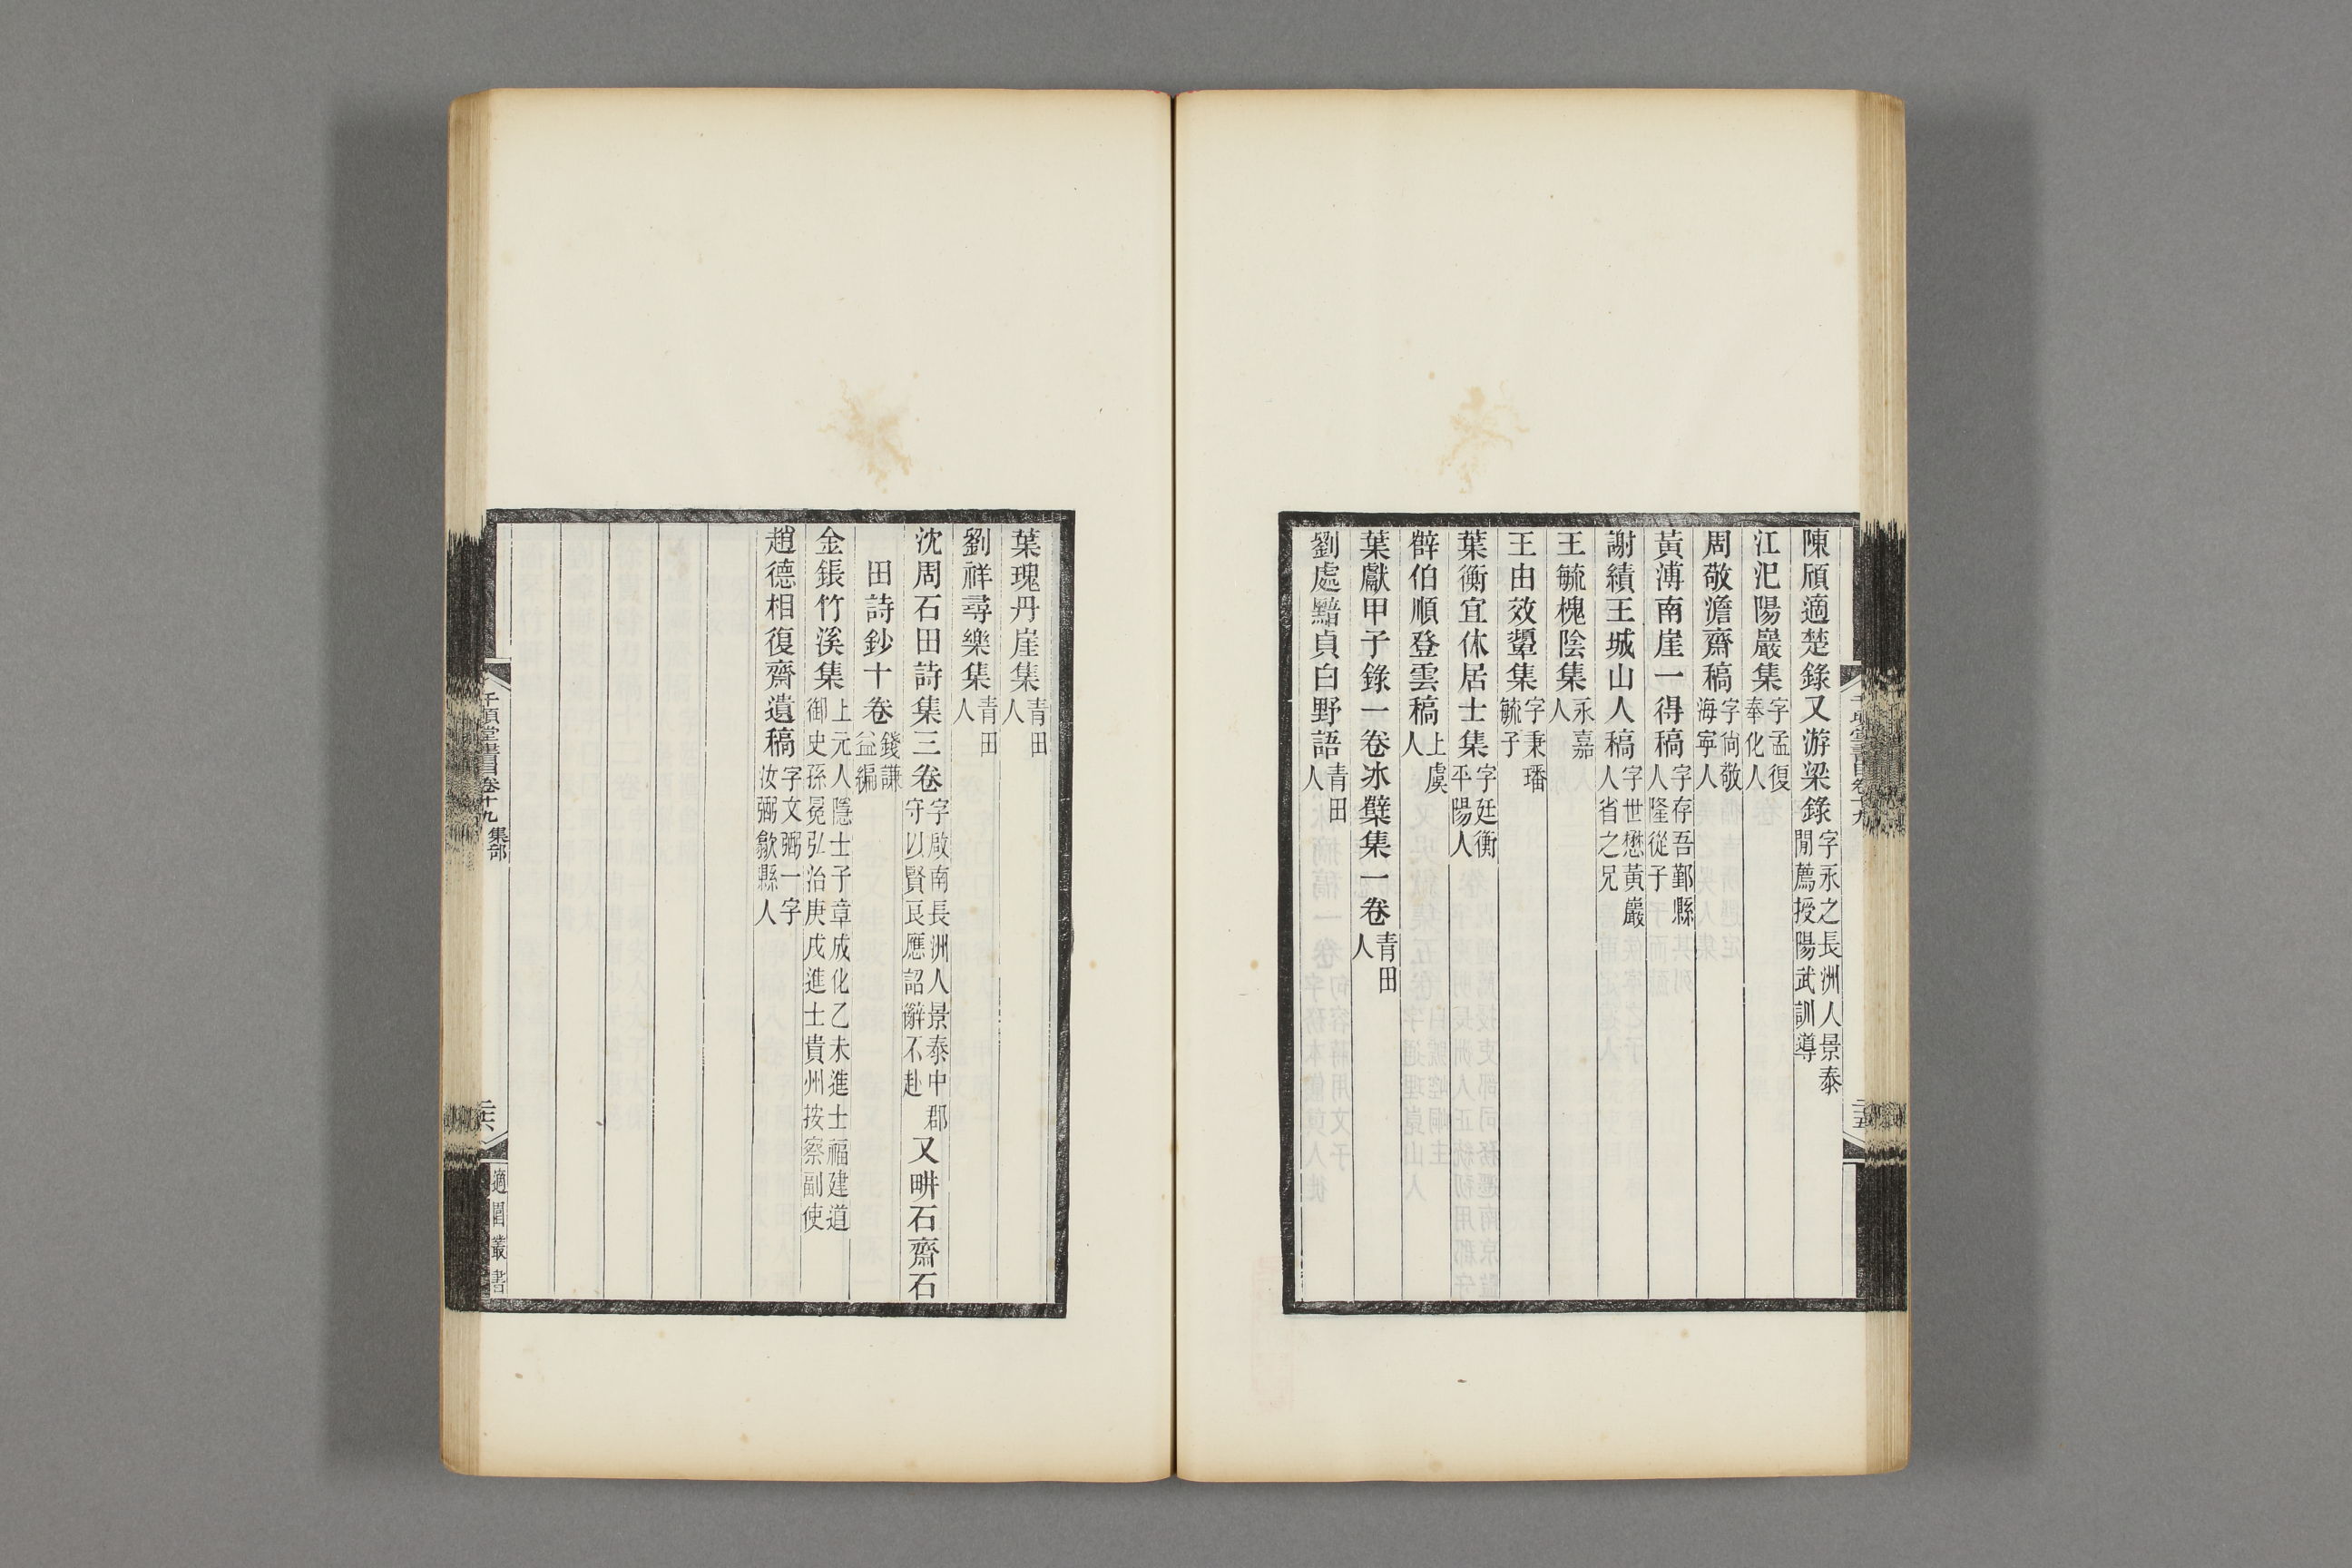 陳頎適楚錄又游梁錄字永之長洲人景泰閒薦授陽武訓導
江汜陽巖集字孟復奉化人
周敬澹齋稿字尙敬海寧人
黃溥南崖一得稿字存吾鄞縣人隆從子
謝績王城山人稿字世懋黃巖人省之兄
王毓槐陰集永嘉人
王由效顰集字秉璠毓子
葉衡宜休居士集字廷衡平陽人
薛伯順登雲稿上虞人
葉獻甲子錄一卷冰櫱集一卷青田人
劉處黯貞白野語青田人
葉瑰丹崖集青田人
劉祥尋樂集青田人
沈周石田詩集三卷字啟南長洲人景泰中郡守以賢良應詔辭不赴又畊石齋石
田詩鈔十卷錢謙益編
金鋹竹溪集上元人隱士子章成化乙未進士福建道御史孫冕弘治庚戌進士貴州按察副使
趙德相復齋遺稿字文弼一字汝弼歙縣人
千頃堂書目卷十九 集部
二六
適園叢書